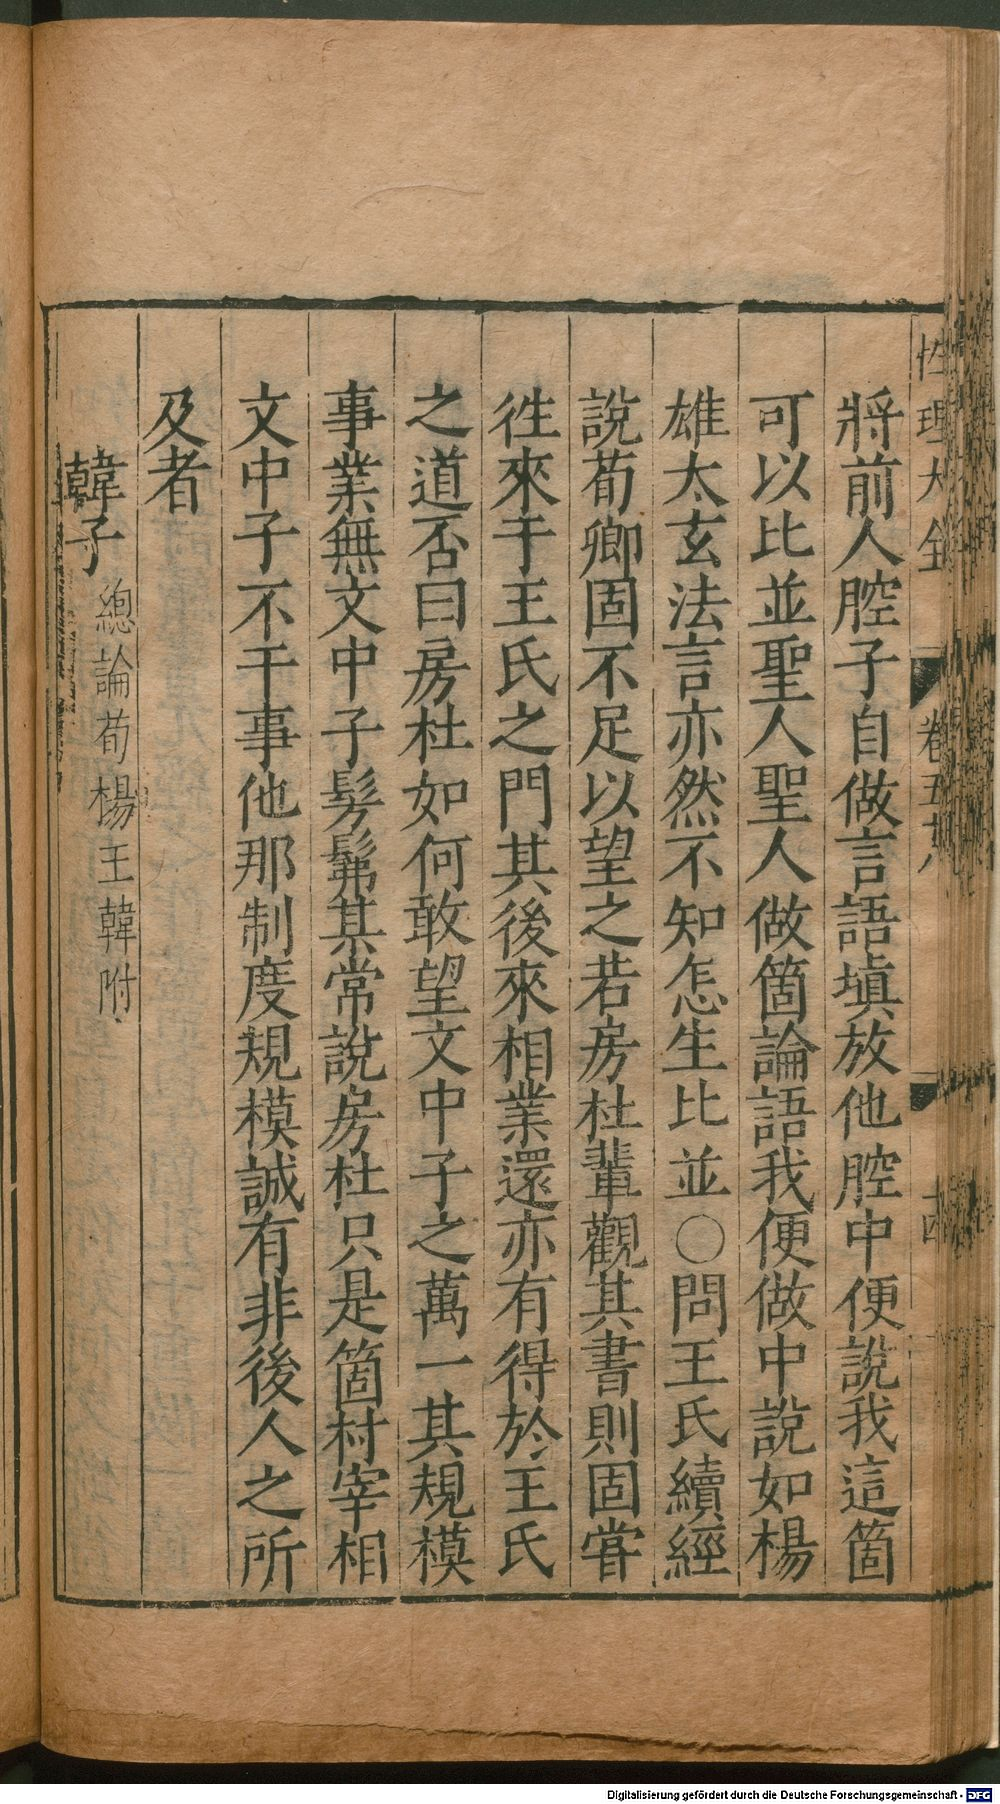 性理大全 卷五十八 十四
將前人腔子自做言語塡放他腔中便說我這箇
可以比並聖人聖人做箇論語我便做中說如楊
雄太玄法言亦然不知怎生比並○問王氏續經
說荀卿固不足以望之若房杜輩觀其書則固嘗
徃來于王氏之門其後來相業還亦有得於王氏
之道否曰房杜如何敢望文中子之萬一其規模
事業無文中子髣髴某常說房杜只是箇村宰相
文中子不干事他那制度規模誠有非後人之所
及者
韓子 總論荀楊王韓附
Digitalisierung gefördert durch die Deutsche Forschungsgemeinschaft - DFG